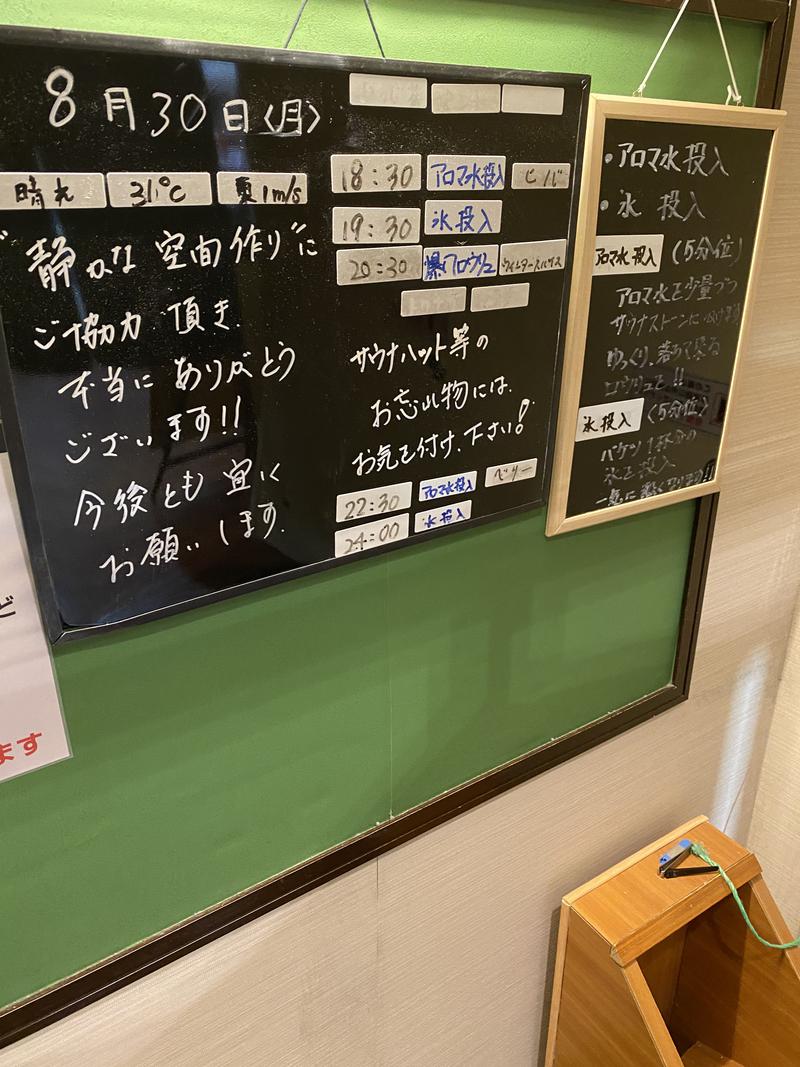 8月30日〈月〉
晴れ 31℃ 1m/s
"静かな空間作り"に
ご協力頂き
本当にありがとう
ございます!!
今後とも宜しく
お願いします。
18:30 アロマ水投入
19:30 氷投入
20:30 爆アロウリュ
サウナハット等の
お忘れ物には、
お気を付け下さい!
22:30 アロマ水投入 ベリー
24:00 氷投入
・アロマ水投入
・氷投入
アロマ水投入 (5分位)
アロマ水を少量づつ
サウナストーンに
ゆっくり
ロウリュを!!
氷投入 (5分位)
バケツ1杯分の
氷を投入
ど
ます